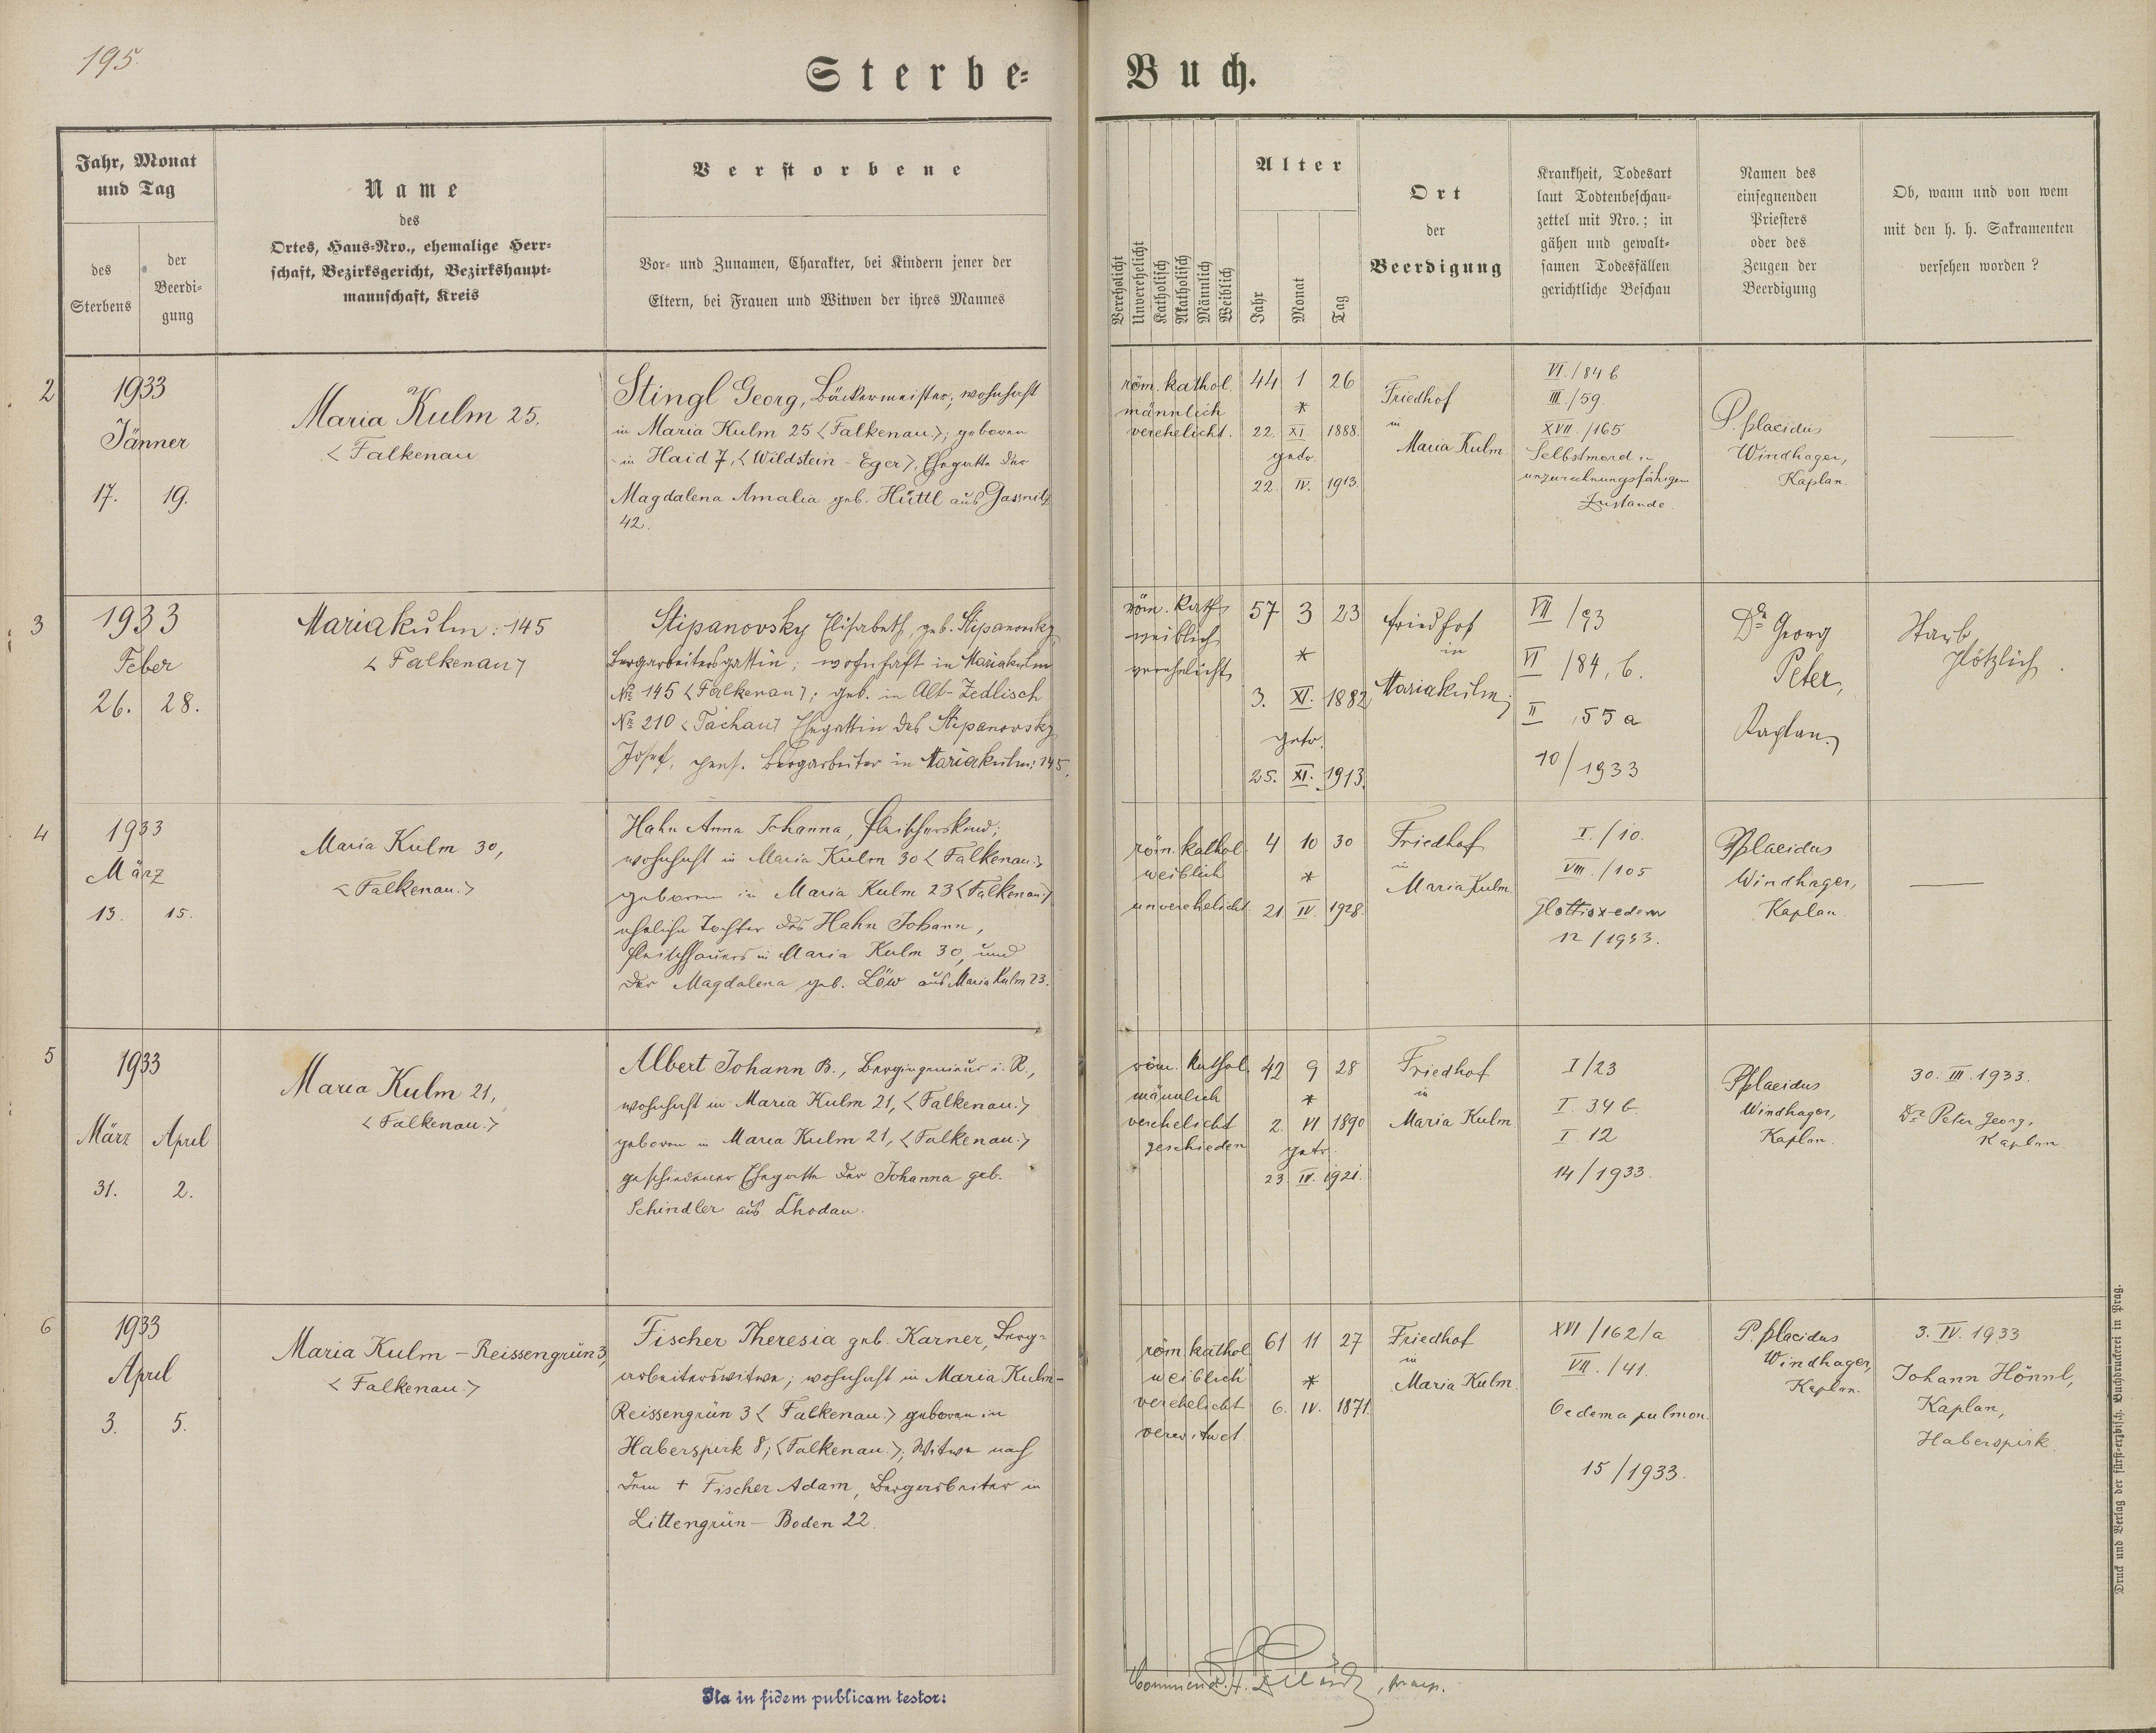 195.
Sterbe-
Buch.
Jahr, Monat
und Tag
des
Sterbens
der
Beerdi-
gung
Name
des
Ortes, Haus-Nro., ehemalige Herr-
schaft, Bezirksgericht, Bezirkshaupt-
mannschaft, Kreis
Verstorbene
Vor- und Zunamen, Charakter, bei Kindern jener der
Eltern, bei Frauen und Witwen der ihres Mannes
Verehelicht
Unverehelicht
Katholisch
Akatholisch
Männlich
Weiblich
Alter
Jahr
Monat
Tag
Ort
der
Beerdigung
Krankheit, Todesart
laut Todtenbeschau-
zettel mit Nro.; in
gähen und gewalt-
samen Todesfällen
gerichtliche Beschau
Namen des
einsegnenden
Priesters
oder des
Zeugen der
Beerdigung
Ob, wann und von wem
mit den h. h. Sakramenten
versehen worden?
2
1933
Jänner
17. 19.
Maria Kulm 25.
<Falkenau
Stingl Georg, Bäckermeister; wohnhaft
in Maria Kulm 25 <Falkenau>; geboren
in Haid 7, <Wildstein - Eger>, Ehegatte der
Magdalena Amalia geb. Hüttl aus Gassnitz
42.
röm. kathol.
männlich
verehelicht.
44 1 26
*
22. XI 1888.
getr.
22. IV. 1913.
Friedhof
in
Maria Kulm
VI./84 b
III./59.
XVII./165
Selbstmord in
unzurechnungsfähigem
Zustande.
P. Placidus
Windhager,
Kaplan.
3
1933
Feber
26. 28.
Mariakulm: 145
<Falkenau>
Stipanovsky Elisabeth, geb. Stipanovsky
Bergarbeitersgattin; wohnhaft in Mariakulm
No 145 <Falkenau>; geb. in Alt-Zedlisch
No 210 <Tachau> Ehegattin des Stipanovsky
Josef, pens. Bergarbeiter in Mariakulm: 145.
röm. kath
weiblich
verehelicht
57 3 23
*
3. XI. 1882
getr.
25. XI. 1913.
Friedhof
in
Mariakulm
VII /93
VI /84, b.
II ,55 a
10/1933
Dr Georg
Peter,
Kaplan.
Starb
plötzlich.
4
1933
März
13. 15.
Maria Kulm 30,
<Falkenau.>
Hahn Anna Johanna, Fleischerskind;
wohnhaft in Maria Kulm 30 <Falkenau.>,
geboren in Maria Kulm 23 <Falkenau>
eheliche Tochter des Hahn Johann,
Fleischhauers in Maria Kulm 30, und
der Magdalena geb. Löw aus Maria Kulm 23.
röm. kathol
weiblich
unverehelicht
4 10 30
*
21. IV. 1928.
Friedhof
in
Maria Kulm
I./10.
VIII./105
12/1933.
P. Placidus
Windhager,
Kaplan.
5
1933
März April
31. 2.
Maria Kulm 21,
<Falkenau.>
Albert Johann B., Bergingenieur i. R.,
wohnhaft in Maria Kulm 21, <Falkenau.>
geboren in Maria Kulm 21, <Falkenau.>
geschiedener Ehegatte der Johanna geb.
Schindler aus Chodau.
röm. kathol.
männlich
verehelicht
geschieden
42 9 28
*
2. VI. 1890
getr.
23. IV. 1921.
Friedhof
in
Maria Kulm
I/23
I. 34 b
I 12
14/1933.
P. Placidus
Windhager,
Kaplan.
30. III. 1933.
Dr Peter Georg,
Kaplan.
6
1933
April
3. 5.
Maria Kulm - Reissengrün 3,
<Falkenau.>
Fischer Theresia geb. Karner, Berg-
arbeiterswitwe; wohnhaft in Maria Kulm-
Reissengrün 3 <Falkenau.> geboren in
Haberspirk 8; <Falkenau.>; Witwe nach
dem + Fischer Adam, Bergarbeiter in
Littengrün - Boden 22.
röm. kathol
weiblich
verehelicht
verwitwet
61 11 27
*
6. IV. 1871.
Friedhof
in
Maria Kulm.
XVI/162/a
VII./41.
Oedema pulmon.
15/1933.
P. Placidus
Windhager,
Kaplan.
3. IV. 1933
Johann Hönnl,
Kaplan,
Haberspirk.
Ita in fidem publicam testor:
Druck und Verlag der fürst-erzbisch. Buchdruckerei in Prag.